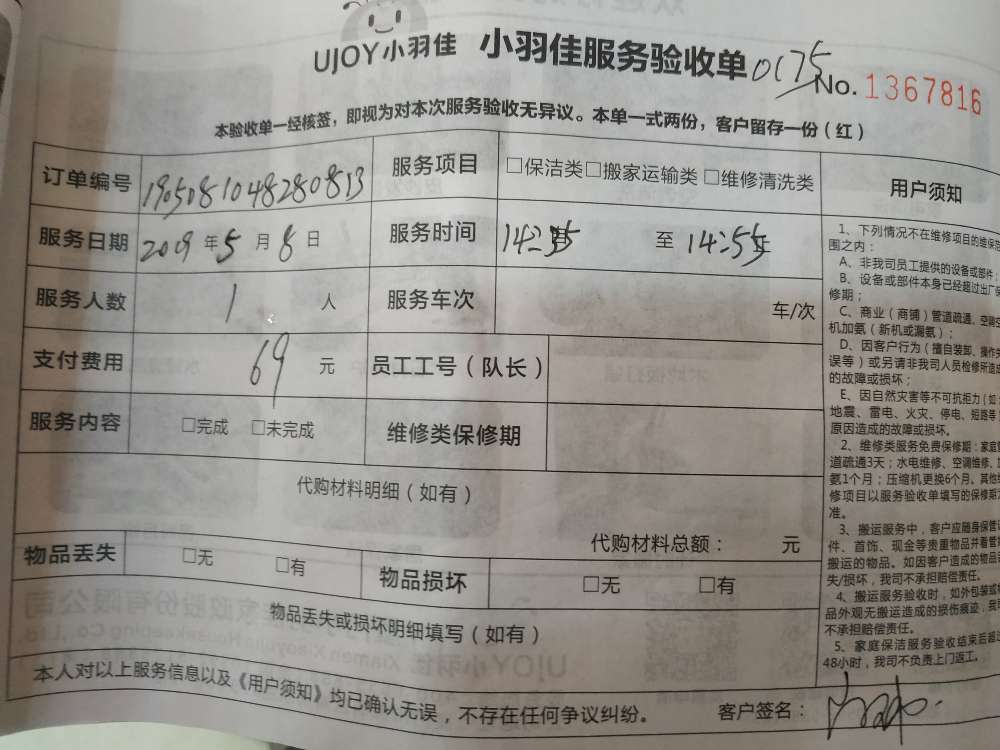 UJOY小羽佳 小羽佳服务验收单 0175 No. 1367816
本验收单一经核签，即视为对本次服务验收无异议。本单一式两份，客户留存一份（红）
订单编号 190508104828083 服务项目 □保洁类□搬家运输类 □维修清洗类
服务日期 2019 年 5 月 8 日 服务时间 至 14:55
服务人数 1 人 服务车次 车/次
支付费用 69 元 员工工号（队长）
服务内容 □完成 □未完成 维修类保修期
代购材料明细（如有）
代购材料总额： 元
物品丢失 □无 □有 物品损坏 □无 □有
物品丢失或损坏明细填写（如有）
本人对以上服务信息以及《用户须知》均已确认无误，不存在任何争议纠纷。 客户签名：
用户须知
1、下列情况不在维修项目的维保范
围之内：
A、非我司员工提供的设备或部件；
B、设备或部件本身已经超过出厂保
修期；
C、商业（商铺）管道疏通、空调空
机加氨（新机或漏氨）；
D、因客户行为（擅自装卸、操作失
误等）或另请非我司人员检修所造成
的故障或损坏；
E、因自然灾害等不可抗拒力（如：
地震、雷电、火灾、停电、短路等
原因造成的故障或损坏。
2、维修类服务免费保修期：家庭管
道疏通3天；水电维修、空调维修、
氨1个月；压缩机更换6个月、其他维
修项目以服务验收单填写的保修期为
准。
3、搬运服务中，客户应随身保管证
件、首饰、现金等贵重物品并看管
搬运的物品。如因客户造成的物品丢
失/损坏，我司不承担赔偿责任。
4、搬运服务验收时，如外包装或物
品外观无搬运造成的损伤痕迹，我司
不承担赔偿责任。
5、家庭保洁服务验收结束后超过
48小时，我司不负责上门返工。